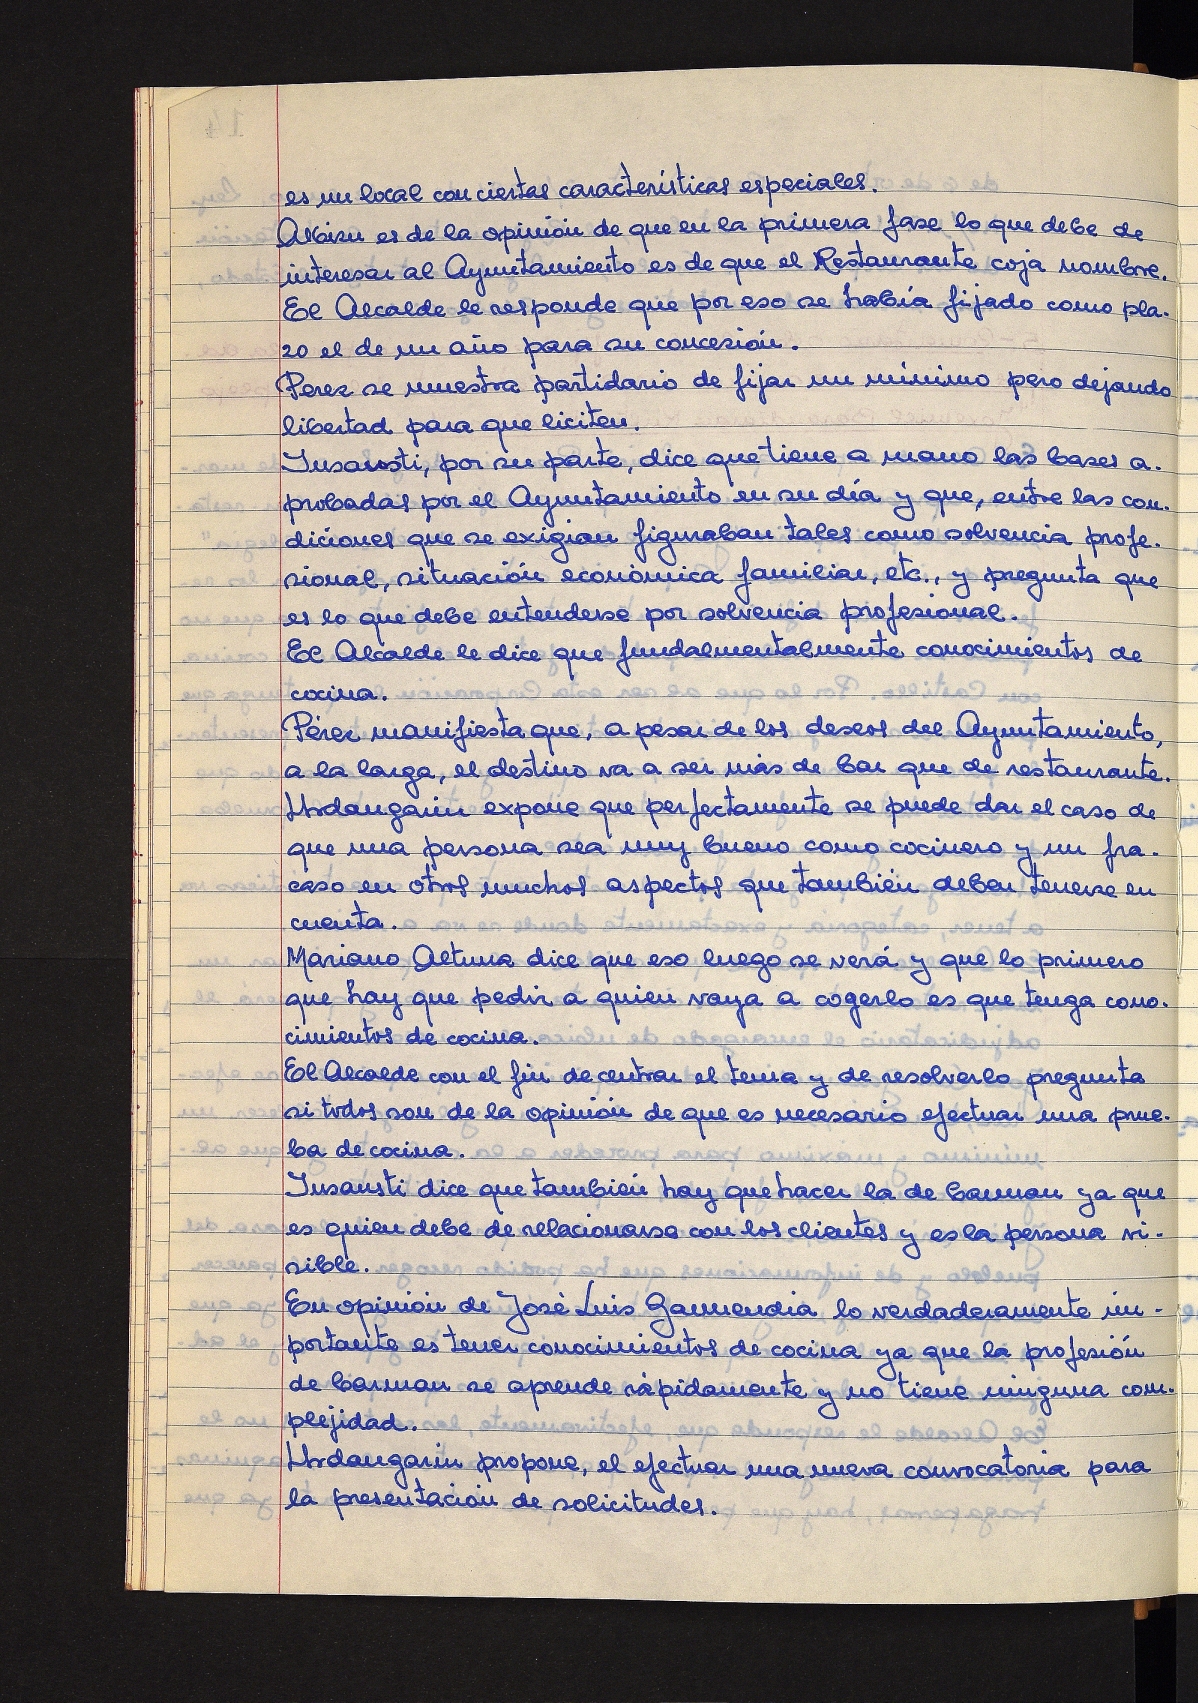 es un local con ciertas características especiales.
Albizu es de la opinión de que en la primera fase lo que debe de
interesar al Ayuntamiento es de que el Restaurante coja nombre.
El Alcalde le responde que por eso se había fijado como pla-
zo el de un año para su concesión.
Perez se muestra partidario de fijar un mínimo pero dejando
libertad para que liciten.
Insausti, por su parte, dice que tiene a mano las bases a-
probadas por el Ayuntamiento en su día y que, entre las con-
diciones que se exigían figuraban tales como solvencia profe-
sional, situación económica familiar, etc., y pregunta que
es lo que debe entenderse por solvencia profesional.
El Alcalde le dice que fundalmentalmente conocimientos de
cocina.
Pérez manifiesta que, a pesar de los deseos del Ayuntamiento,
a la larga, el destino va a ser más de bar que de restaurante.
Urdangarin expone que perfectamente se puede dar el caso de
que una persona sea muy bueno como cocinero y un fra-
caso en otros muchos aspectos que también deben tenerse en
cuenta.
Mariano Altuna dice que eso luego se verá y que lo primero
que hay que pedir a quien vaya a cogerlo es que tenga cono-
cimientos de cocina.
El Alcalde con el fin de centrar el tema y de resolverlo pregunta
si todos son de la opinión de que es necesario efectuar una prue-
ba de cocina.
Insausti dice que también hay que hacer la de barman ya que
es quien debe de relacionarse con los clientes y es la persona vi-
sible.
En opinión de José Luis Garmendia lo verdaderamente im-
portante es tener conocimientos de cocina ya que la profesión
de barman se aprende rápidamente y no tiene ninguna com-
plejidad.
Urdangarin propone, el efectuar una nueva convocatoria para
la presentación de solicitudes.